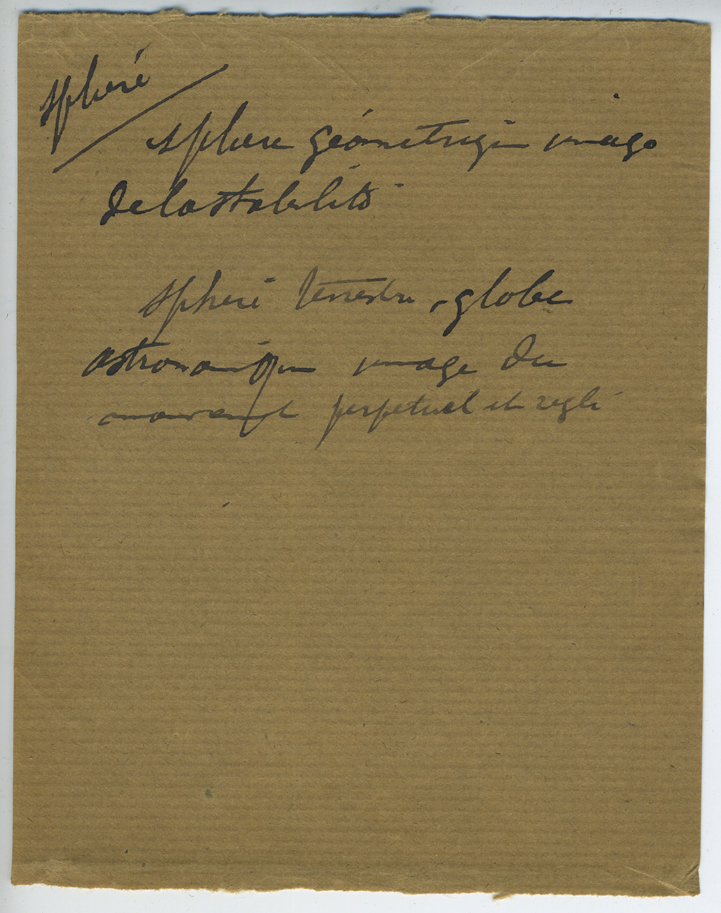 sphère
sphère géométrique image
de la stabilité
sphère terrestre, globe
astronomique image du
mouvement perpetuel et réglé